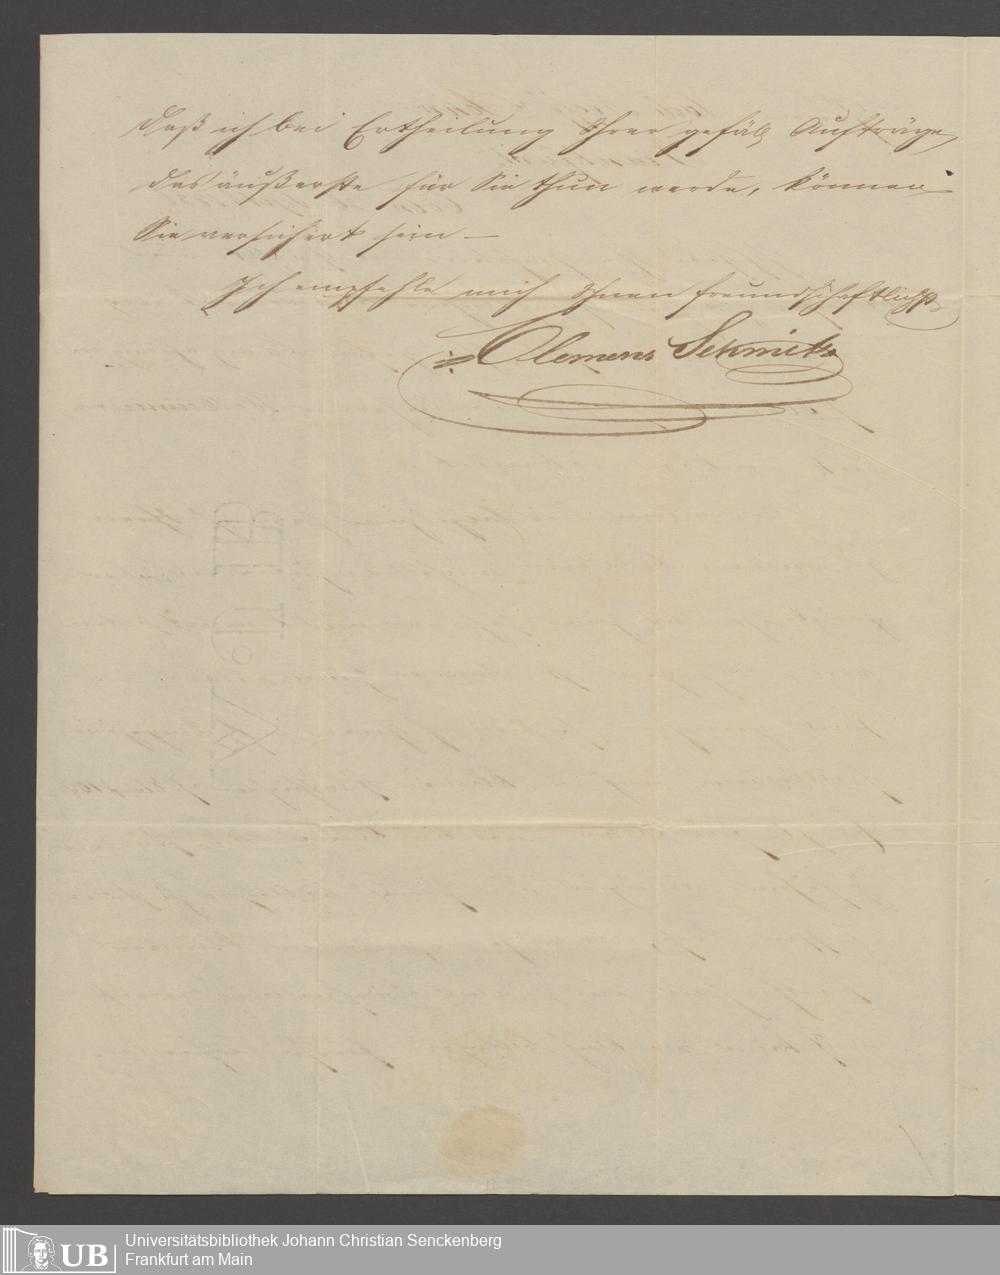 daß ich bei Ertheilung Ihrer gefäll Aufträge
das äußerste für Sie thun werde, können
Sie versichert sein —
Ich empfehle mich Ihnen freundschaftlichst
Clemens Schmitz
UB
Universitätsbibliothek Johann Christian Senckenberg
Frankfurt am Main